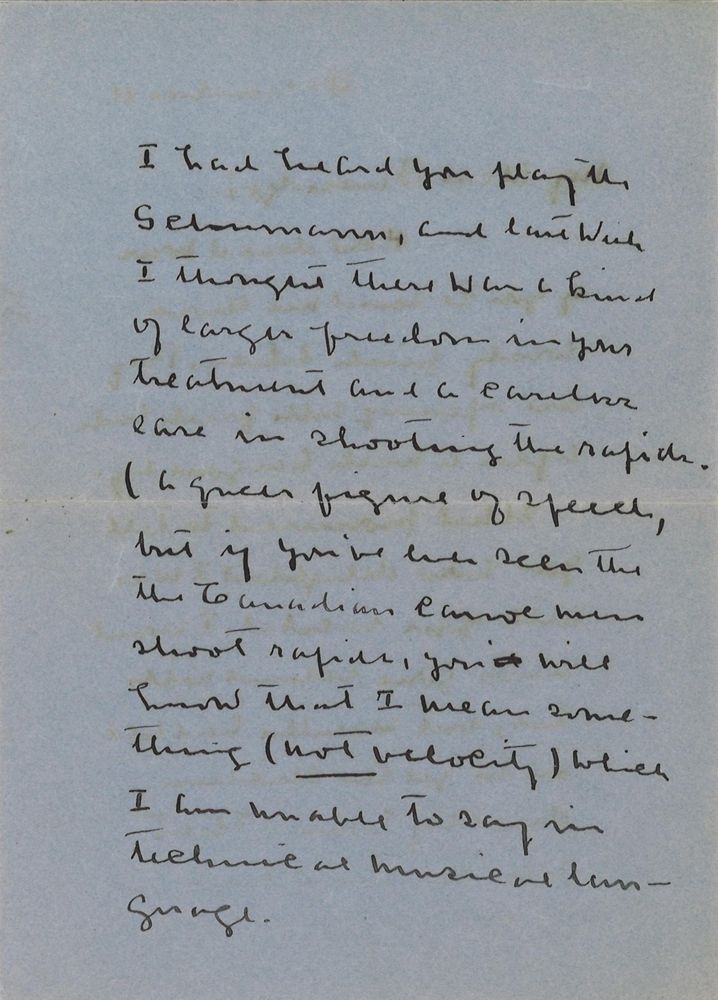 I had heard you play the
Schumann, and last week
I thought there was a kind
of larger freedom in your
treatment and a careless
ease in shooting the rapids.
(a queer figure of speech,
but if you've ever seen the
the Canadian canoe men
shoot rapids, you will
know that I mean some-
thing (not velocity) which
I am unable to say in
technical musical lan-
guage.